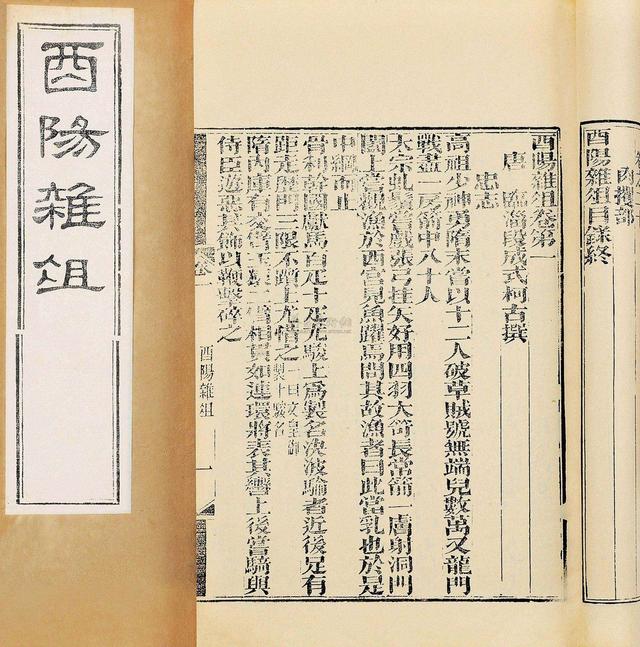 酉陽雜俎
肉攫部
酉陽雜俎目錄終
酉陽雜俎卷第一
唐 臨淄段成式柯古撰
忠志
高祖少神勇隋末嘗以十二人破草賊號無端兒數萬又龍門
戰盡一房箭中八十人
太宗虬鬚嘗戲張弓挂矢好用四羽大笴長常箭一膚射洞門
闔上嘗觀漁於西宮見魚躍焉問其故漁者曰此當乳也於是
中網而止
骨利幹國獻馬百疋十疋尤駿上爲製名決波騟者近後足有
距走歷門三限不躓上尤惜之一曰文皇御製十驥名
隋內庫有交臂玉猿二臂相貫如連環將表其轡上後嘗騎與
侍臣遊惡其飾以鞭擊碎之
酉陽雜俎
一